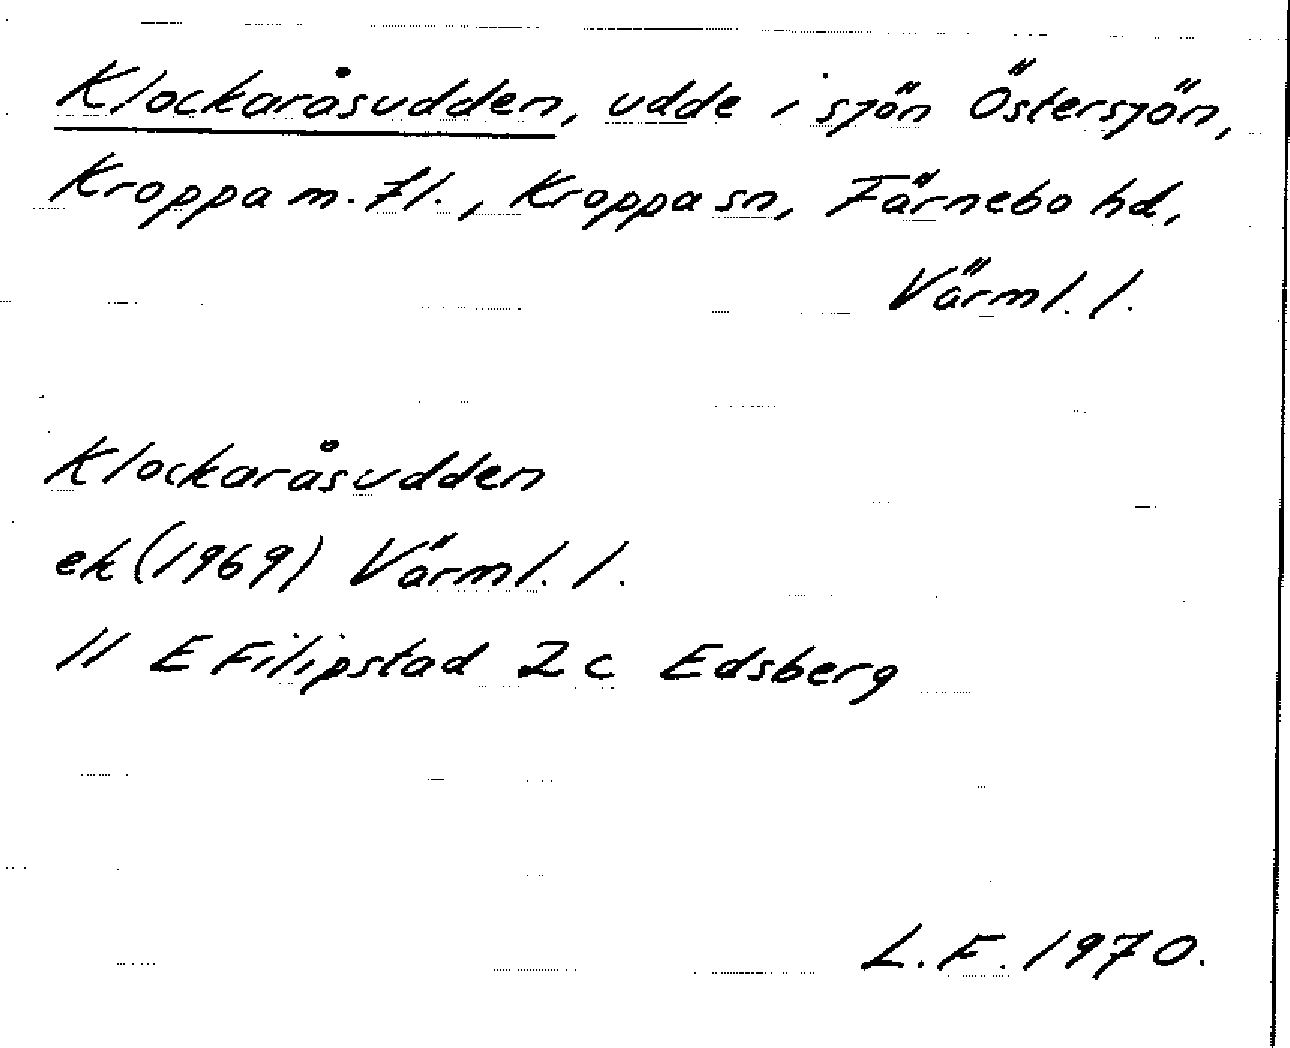 Klockaråsudden, udde i sjön Östersjön,
Kroppa m. fl., Kroppa sn, Färnebo hd,
Värml. l.
Klockaråsudden
ek (1969) Värml. l.
11 E Filipstad 2 c Edsberg
L. F. 1970.